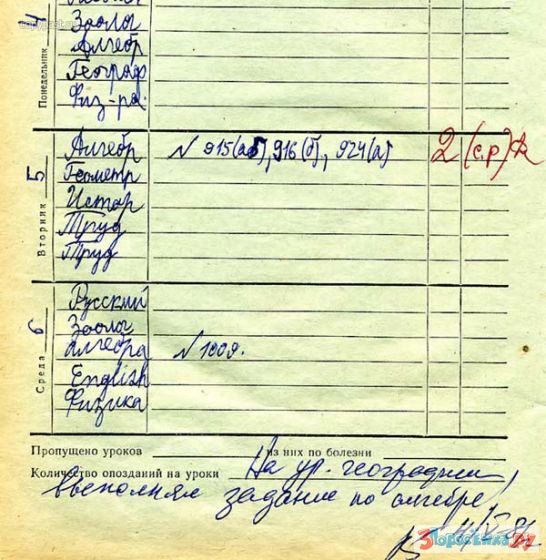 4
Понедельник
Зоолог
Алгебр
Географ
Физ-ра
5
Вторник
Алгебр N 915(аб), 916(б), 924(а) 2 (с.р)
Геометр
Истор
Труд
Труд
6
Среда
Русский
Зоолог
Алгебра N 1009.
English
Физика
Пропущено уроков из них по болезни
Количество опозданий на уроки На ур. географии
выполнял задание по алгебре!